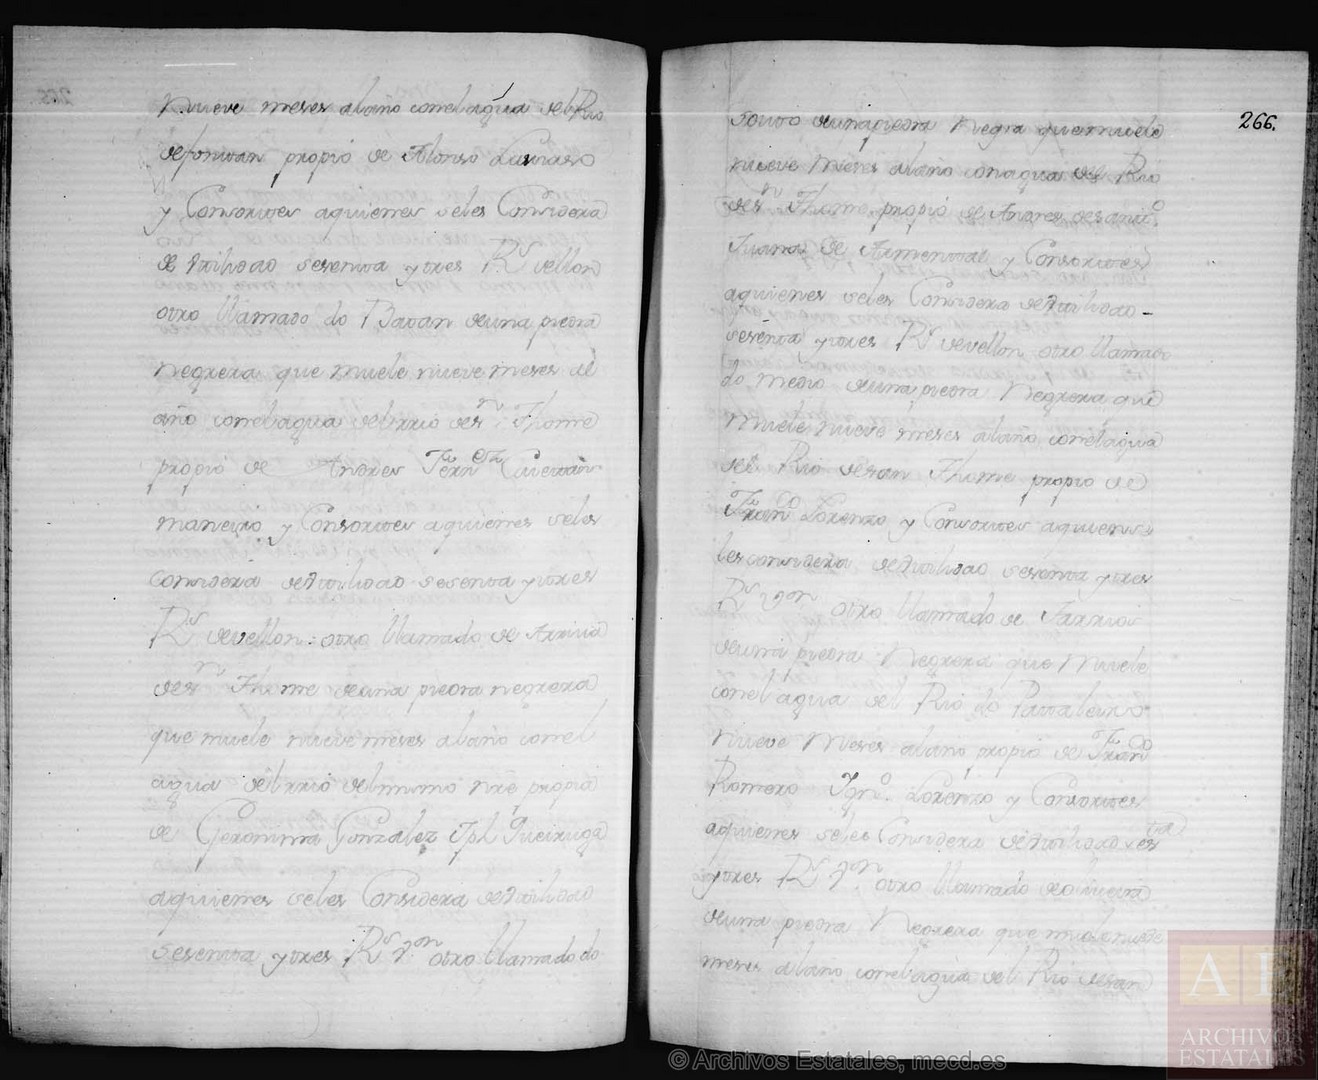 nueve meses alaño conel agua del Rio
defontan propio de Alonso
y Consortes aquienes seles Considera
de Vtilidad sesenta ytres Rs. vellon
otro llamado do Batan deuna piedra
negrera que muele nueve meses al
año conel agua del rrio desn. Thome
propio de Andres Fern.dz
maneiro y Consortes aquienes seles
considera deVtilidad sesenta ytres
Rs. devellon: otro llamado de Arriva
desn. Thome deuna piedra negrera
que muele nueve meses alaño conel
agua del rrio del mismo nre propio
de Geronima Gonzalez Jph Queiruga
aquienes seles Considera deVtilidad
sesenta ytres Rs. von. otro llamado do
266.
souto deuna piedra Negra quemuele
nueve meses alaño conagua del Rio
desn. Thome propio de Andres desanto.
Juana de Armental y Consortes
aquienes seles Considera deVtilidad
sesenta ytres Rs. devellon otro llamado
do medio deuna piedra Negrera que
muele nueve meses alaño conel agua
del Rio desan Thome propio de
Franco. Lorenzo y Consortes aquienes
lesconsidera deVtilidad sesenta ytres
Rs. von. otro llamado de
deuna piedra Negrera que Muele
conel agua del Rio do
nueve Meses alaño propio de Franco.
Romero Ign.o Lorenzo y Consortes
aquienes seles Considera deVtilidad sesenta
ytres Rs. von. otro llamado
deuna piedra Negrera que muele nueve
meses alaño conel agua del Rio desan
© Archivos Estatales, mecd.es
AE
ARCHIVOS
ESTATALES